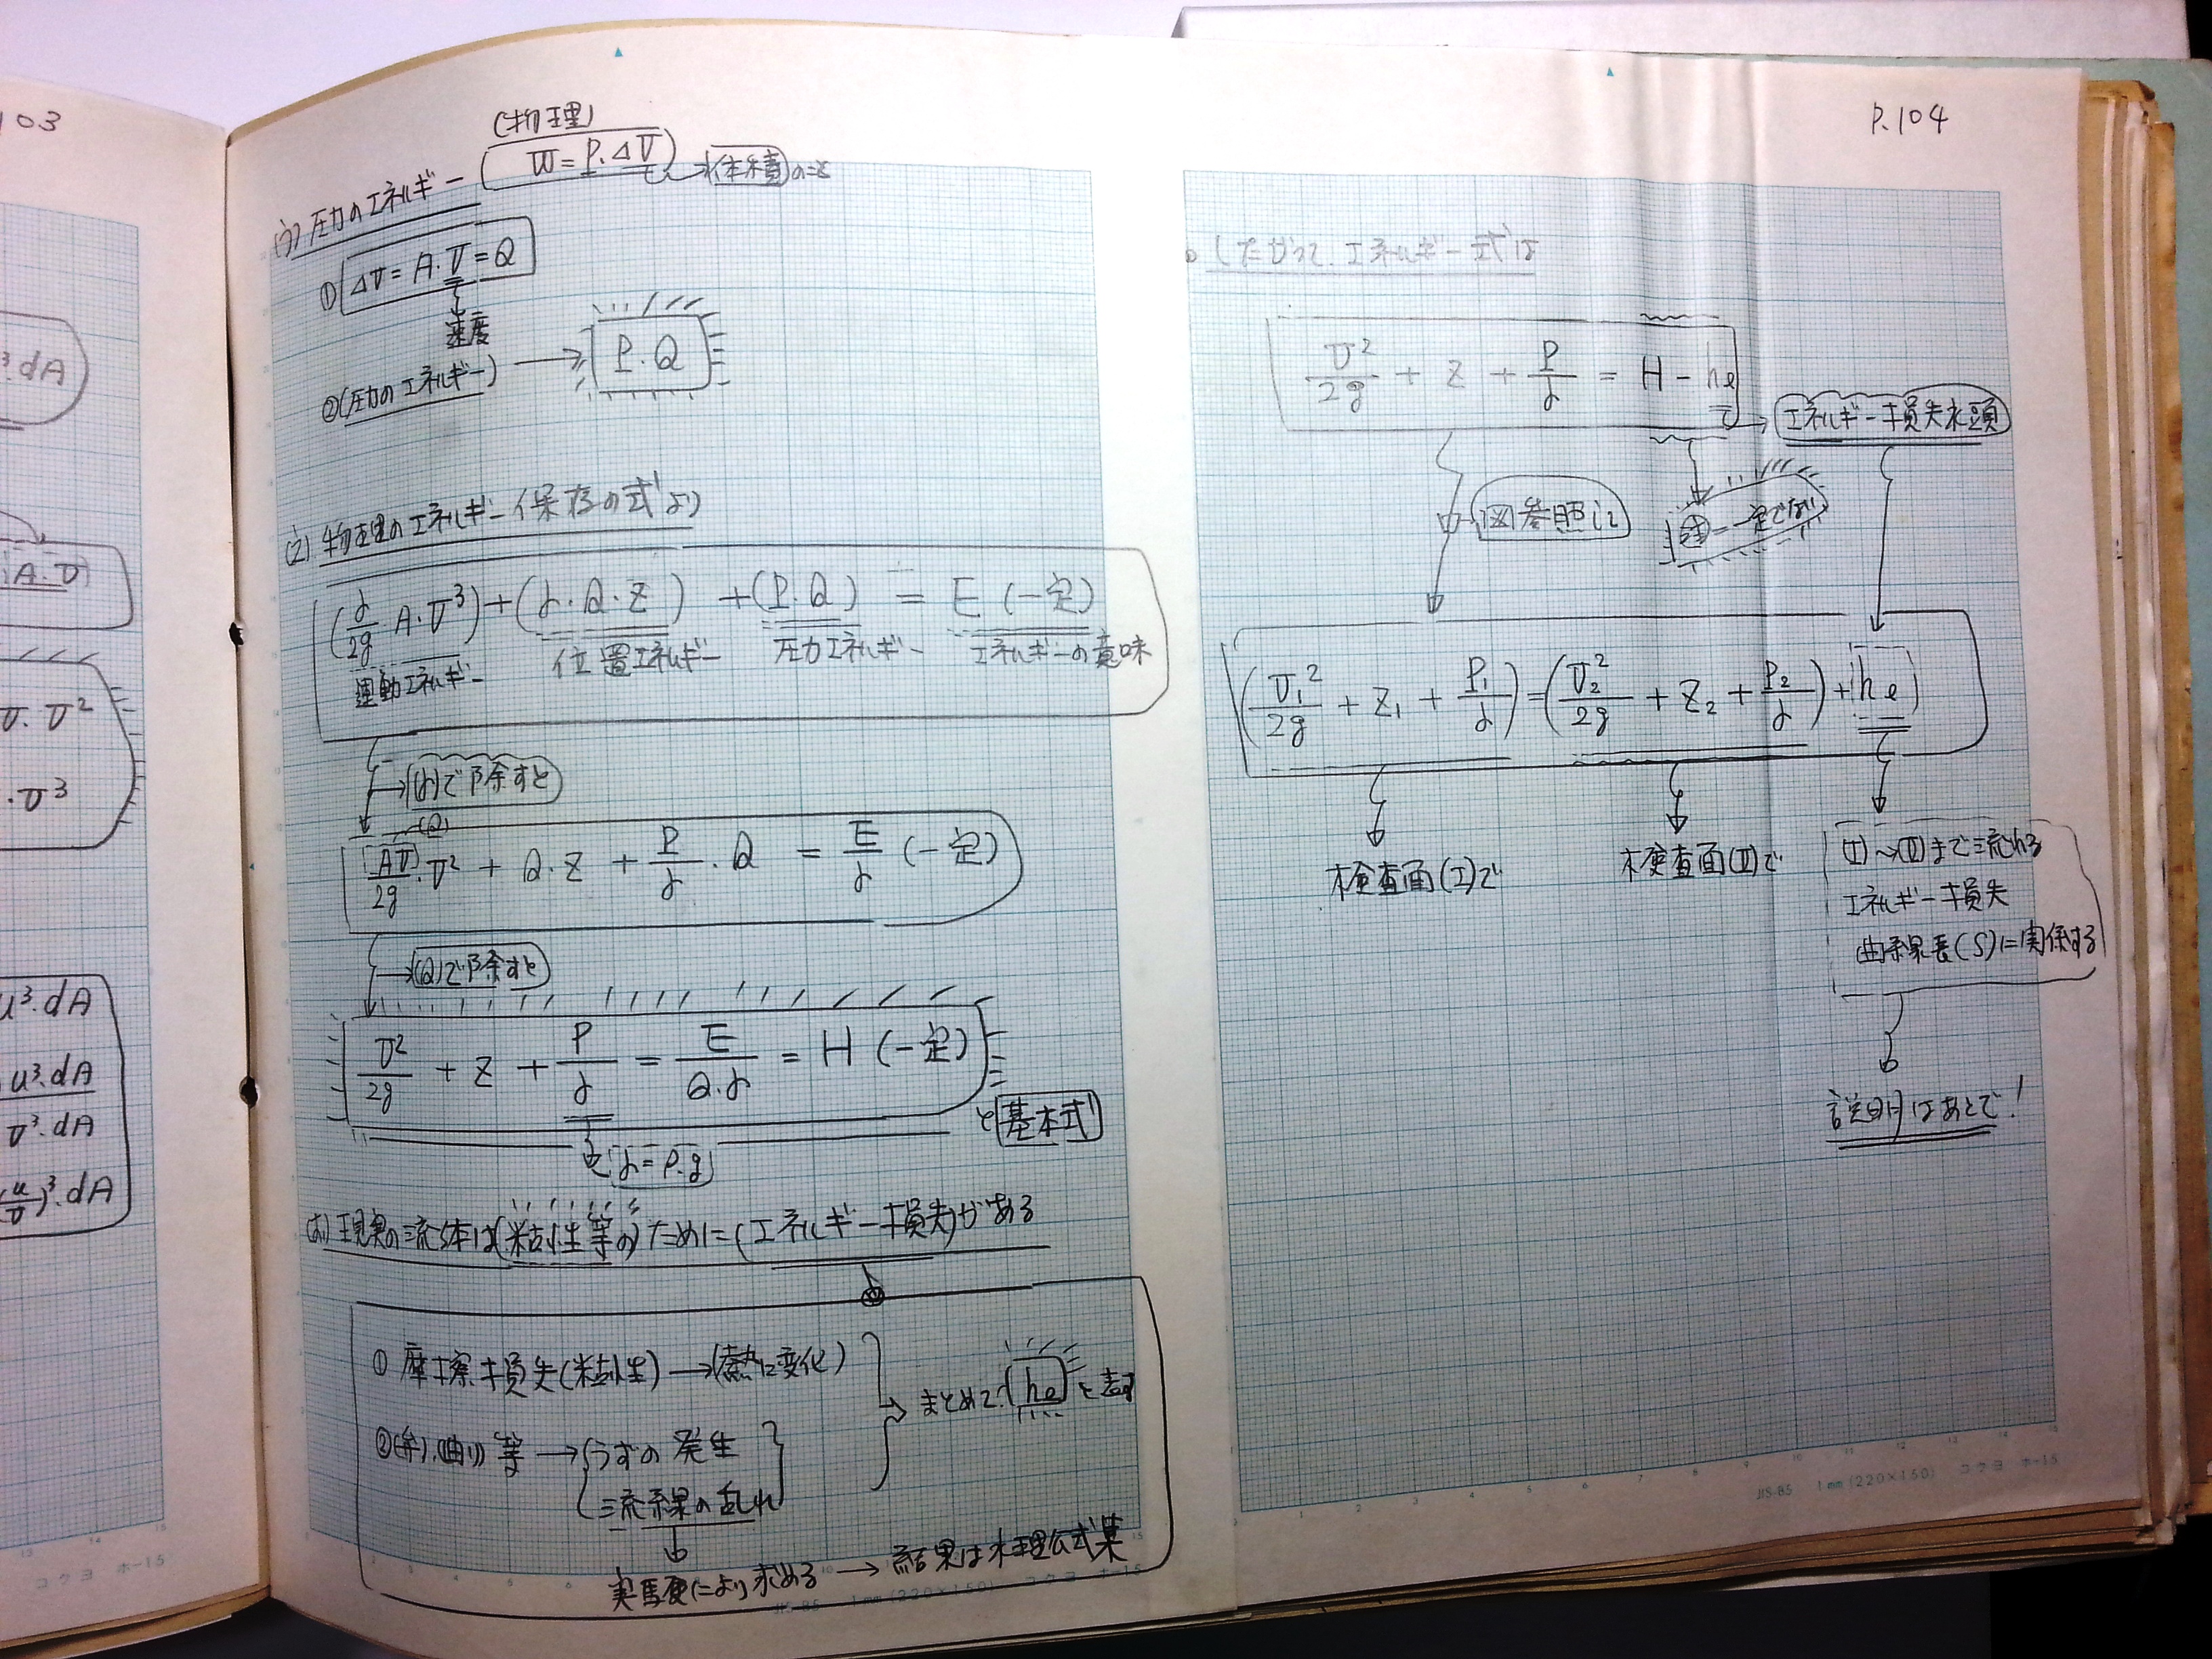 103
³.dA
(A.V)
V.V²
.V³
u³.dA
u³.dA
V³.dA
(u/V)³.dA
(物理)
(う) 圧力のエネルギー (W=P.ΔV) → (体積)のこと
① ΔV = A.V = Q
速度
②(圧力のエネルギー) → P.Q
(え) 物理のエネルギー保存の式より
(γ/2g A.V³)+(γ.Q.Z) +(P.Q) = E (一定)
運動エネルギー 位置エネルギー 圧力エネルギー エネルギーの意味
→(γ)で除すと
(Q)
(AV)/2g.V² + Q.Z + P/γ.Q = E/γ (一定)
→(Q)で除すと
V²/2g + Z + P/γ = E/Q.γ = H (一定)
と基本式
(γ=ρ.g)
(お) 現実の流体は(粘性等の)ために(エネルギー損失)がある
① 摩擦損失(粘性) → (熱に変化)
まとめて(he)と表す
②(弁).(曲り)等 → うずの発生
流線の乱れ
実験により求める → 結果は水理公式集
JIS-85 1mm(220×150) コクヨ ホ-15
P.104
したがって、エネルギー式は
V²/2g + Z + P/γ = H - he
→ エネルギー損失水頭
図参照に
一定でない
(V₁²/2g + Z₁ + P₁/γ)=(V₂²/2g + Z₂ + P₂/γ)+(he)
検査面(Ⅰ)で
検査面(Ⅱ)で
(Ⅰ)〜(Ⅱ)まで流れる
エネルギー損失
曲線長(S)に関係する
説明はあとで!
JIS-85 1mm(220×150) コクヨ ホ-15
コクヨ ホ-15